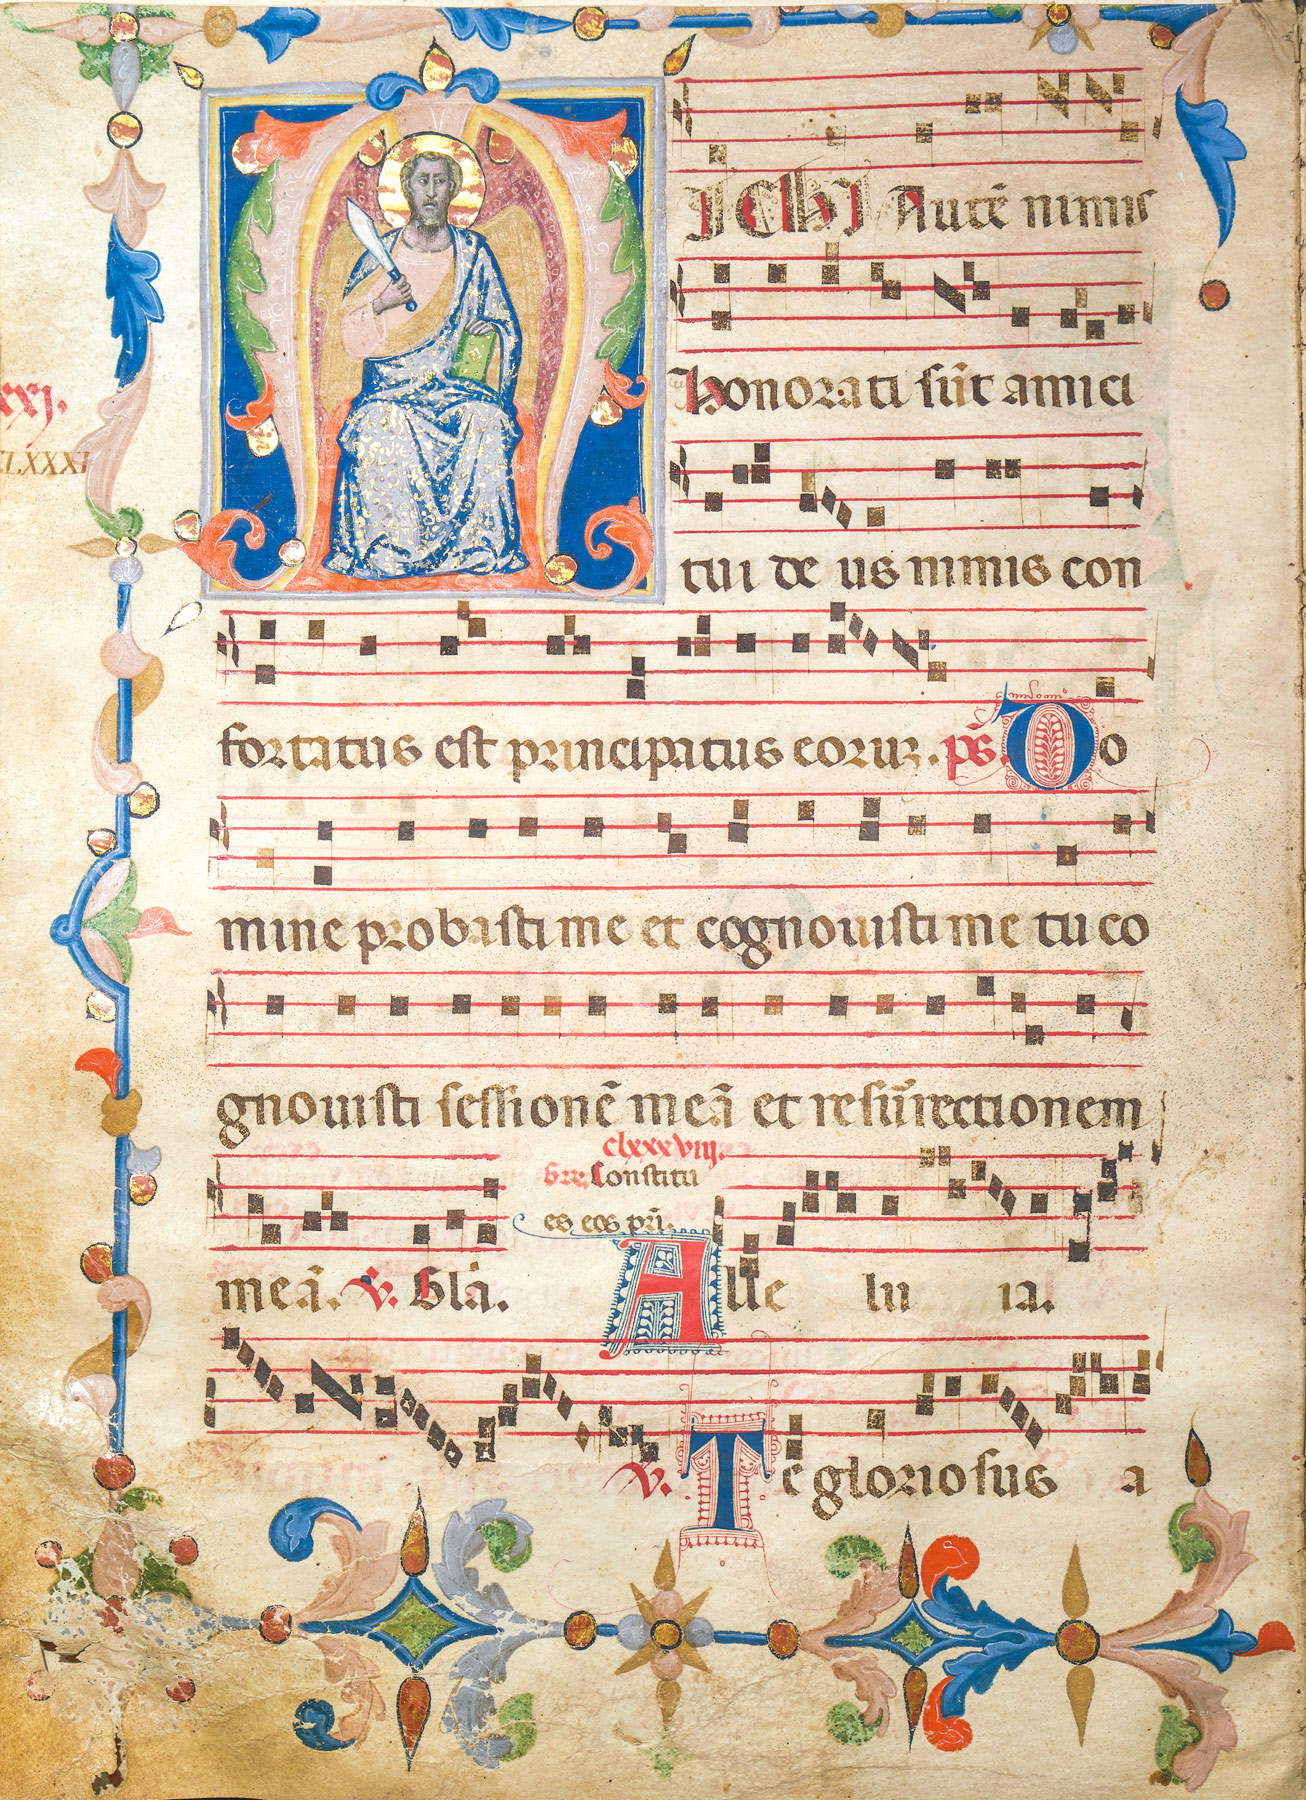 MICHI Autē nimis
xxj.
honorati sūt amici
LXXXI
tui deus nimis con
fortatus est principatus eoruz. ps. Do
mine probasti me et cognouisti me tu co
gnouisti sessionē meā et resūrectionem
clxxxviij.
Constitu
es eos pri.
meā. V. Glā. Alle lu ia.
V. Te gloriosus a